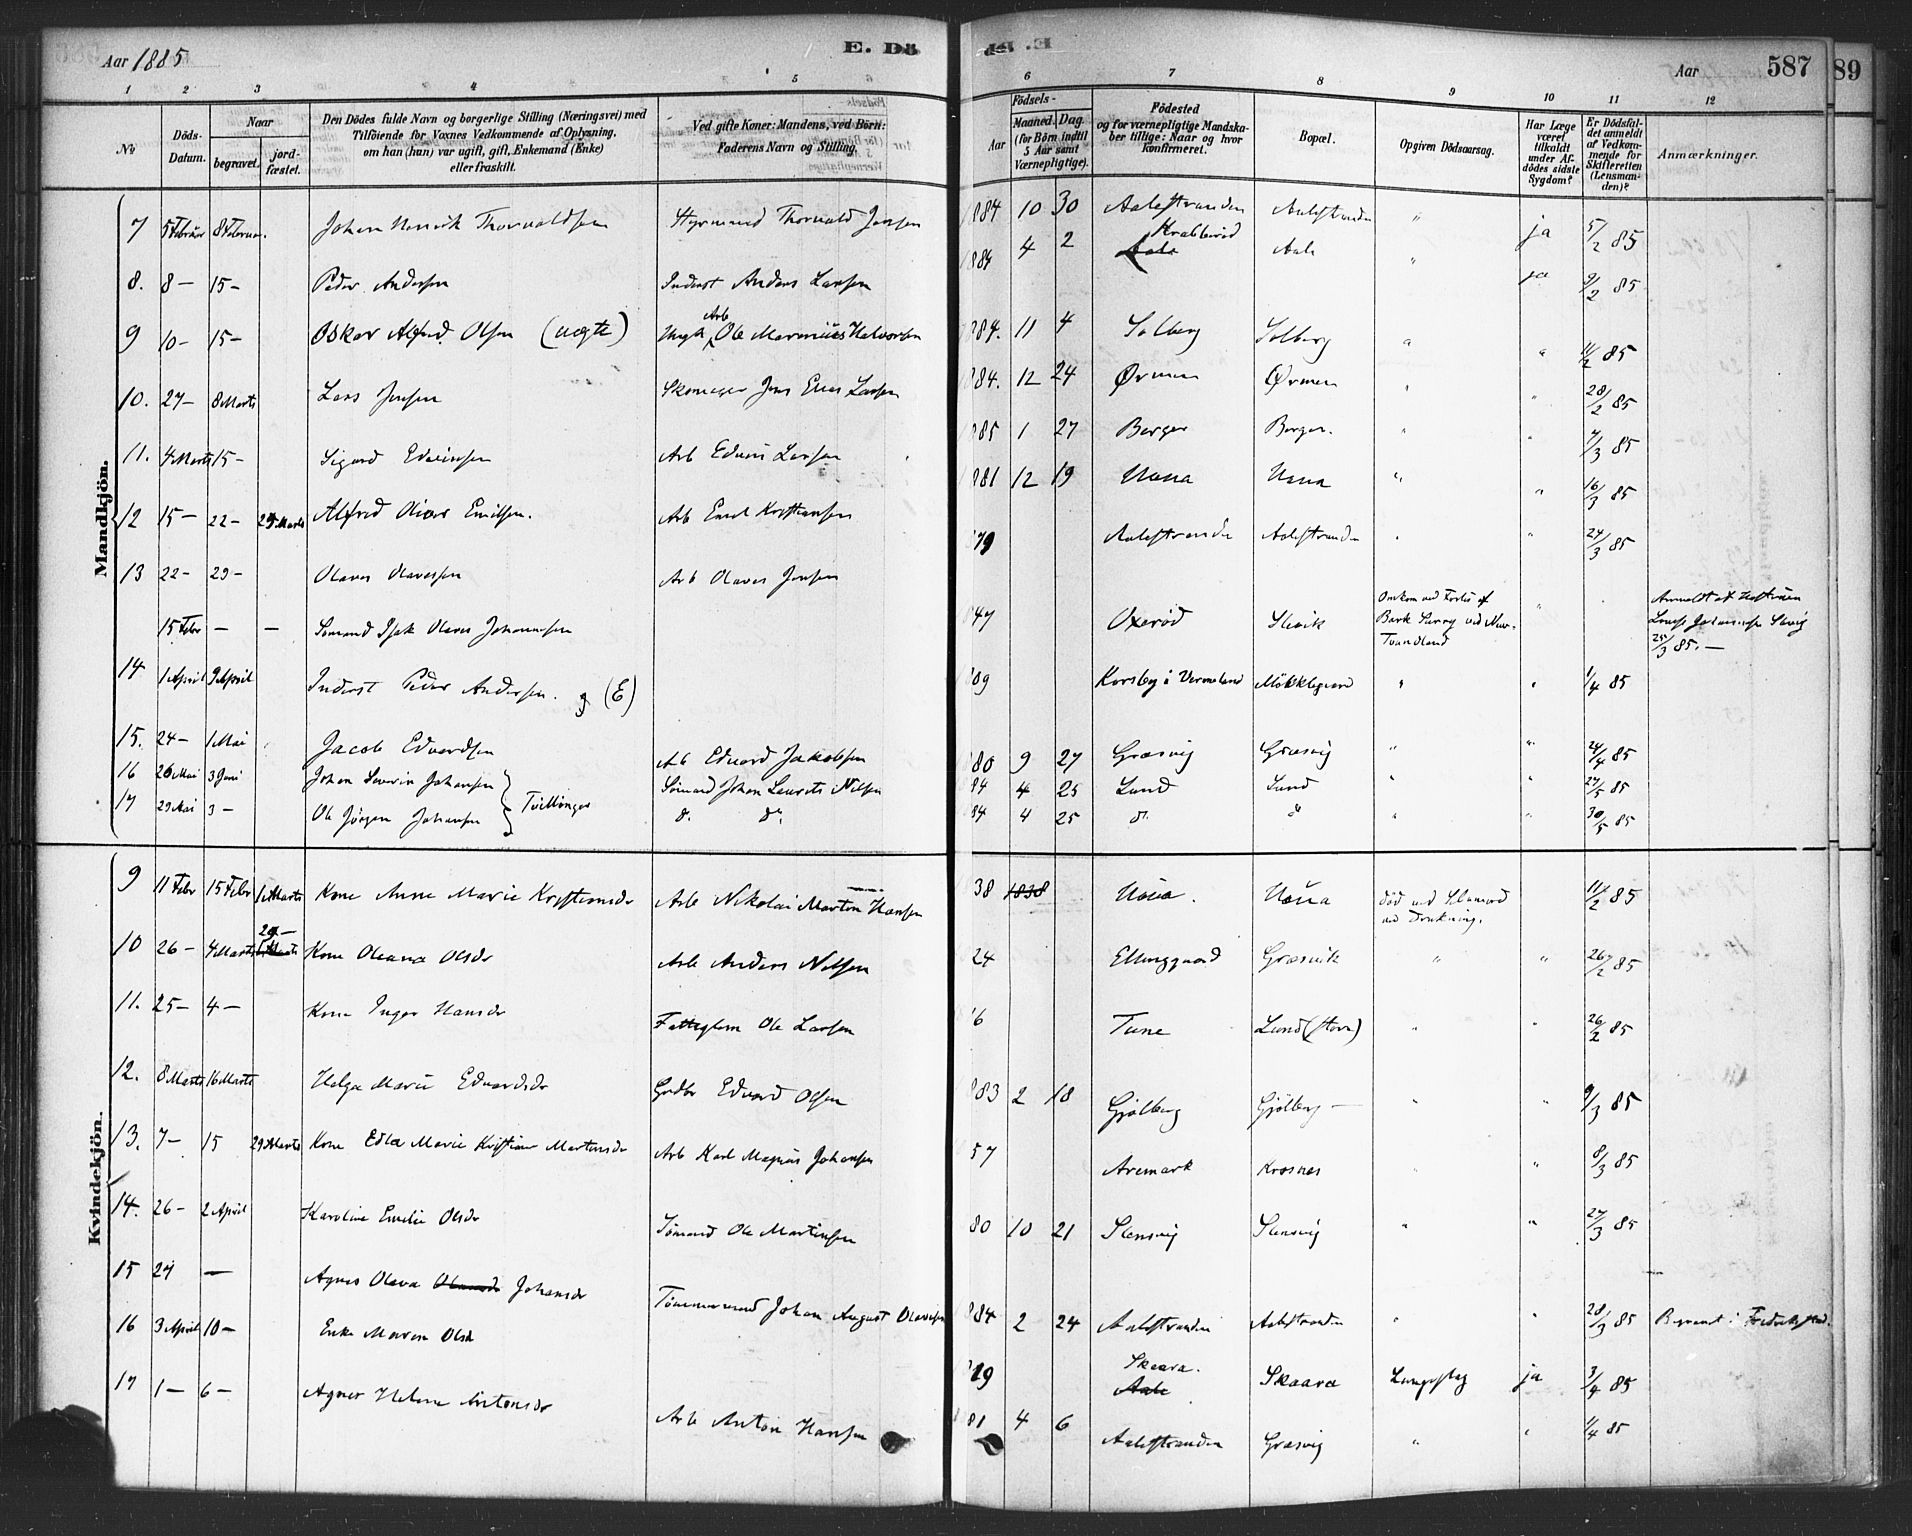 Aar 1885
E. Dö
E. Dö
Aar
587
89
1 2 3 4 5 6 7 8 9 10 11 12
№
Döds-
Datum.
Naar
begravet.
jord-
fæstet.
Den Dödes fulde Navn og borgerlige Stilling (Næringsvei) med
Tilföiende for Voxnes Vedkommende af Oplysning,
om han (hun) var ugift, gift, Enkemand (Enke)
eller fraskilt.
Ved gifte Koner: Mandens, ved Börn:
Faderens Navn og Stilling.
Födsels-
Aar
Maaned. Dag.
(for Börn indtil
5 Aar samt
Værnepligtige).
Födested
og for værnepligtige Mandska-
ber tillige: Naar og hvor
konfirmeret.
Bopæl.
Opgiven Dödsaarsag.
Har Læge
været
tilkaldt
under Af-
dödes sidste
Sygdom?
Er Dödsfal-
det anmeldt
af Vedkom-
mende for
Skifteretten
(Lensman-
den)?
Anmærkninger.
Mandkjön.
7 5 Februar 8 Februar. Johan Henrik Thorvaldsen Styrmand Thorvald Jensen 1884 10 30 Aalestranden Aalestranden " ja 5/2 85
8. 8 – 15 – Peder Andersen Inderst Anders Larsen 1884 4 2 Krabberød Aale Aale " ja 9/2 85
9 10 – 15 – Oskar Alfred Olsen (uegte) Ungk Arb Ole Marenius Halvorsen 1884. 11 4 Solberg Solberg " " 11/2 85
10. 27 – 8 Marts Lars Jensen Skomager Jens Enes Larsen 1884. 12 24 Ørmen Ørmen " " 28/2 85
11. 4 Marts 15 – Sigurd Edvinsen Arb Edvin Larsen 1885 1 27 Berger Berger. " " 7/3 85
12 15 – 22 – 29 Marts Alfred Oliver Emilsen. Arb Emil Kristiansen 1881 12 19 " " 16/3 85
13 22 – 29 – Olaves Olavesen Arb Olaves Jensen 79 Aalestranden Aalestranden " " 24/3 85
15 Febr – – Sømand Isak Olaves Johannesen 47 Oxerød Slevik Omkom ved Forlis af
Bark ved New- "
Anmeldt af
25/3 85. –
14 1 April 9 April Inderst Peder Andersen. g (E) 09 Korsby i Vermeland Møkklegaard " " 1/4 85
15. 24 – 1 Mai Jacob Edvardsen Arb Edvard Jakobsen 80 9 27 Græsvig Græsvig " " 24/4 85
16 26 Mai 3 Juni Johan Severin Johansen Sømand Johan Laurits Nilsen 84 4 25 Lund Lund " " 27/5 85
17 29 Mai 3 – Ole Jørgen Johansen Tvillinger do. do. 84 4 25 do. do " " 30/5 85
Kvindekjön.
9 11 Febr 15 Febr 1 Marts Kone Anne Marie Kristiansdr Arb Nikolai Martin Hansen 38 1838 død ved Selvmord
ved Drukning. 11/2 85
10 26 – 4 Marts 29 – Kone Oleana Olsdr Arb Anders Nilsen 24 Ellinggaard Græsvik " " 26/2 85
11. 25 – 4 – Kone Inger Hansdr Fattiglem Ole Larsen 6 Tune Lund (store) " " 26/2 85
12. 8 Marts 16 Marts Helga Marie Edvardsdr Grdbr Edvard Olsen 1883 2 18 Gjølberg Gjølberg – " " 9/3 85
13. 7 – 15 29 Marts Kone Edla Marie Kristine Martinsdr Arb Karl Magnus Johansen 57 Aremark Krosnes " " 8/3 85
14. 26 – 2 April Karoline Emilie Olsdr Sømand Ole Martinsen 80 10 21 Slevsvig Slevsvig " " 27/3 85
15 27 – Agnes Oleva Johansdr Tømmermand Johan August Olavesen 1884 2 24 Aalestranden Aalestranden " " 28/3 85 Begravet i Fredrikstad.
16 3 April 10 – Enke Maren Olsdr 19 Skaara. Aale Skaara Lungeslag ja 3/4 85
17 1 – 6 – Agnes Helene Antonsdr Arb Anton Hansen 81 4 6 Aalestranden Græsvig " " 11/4 85